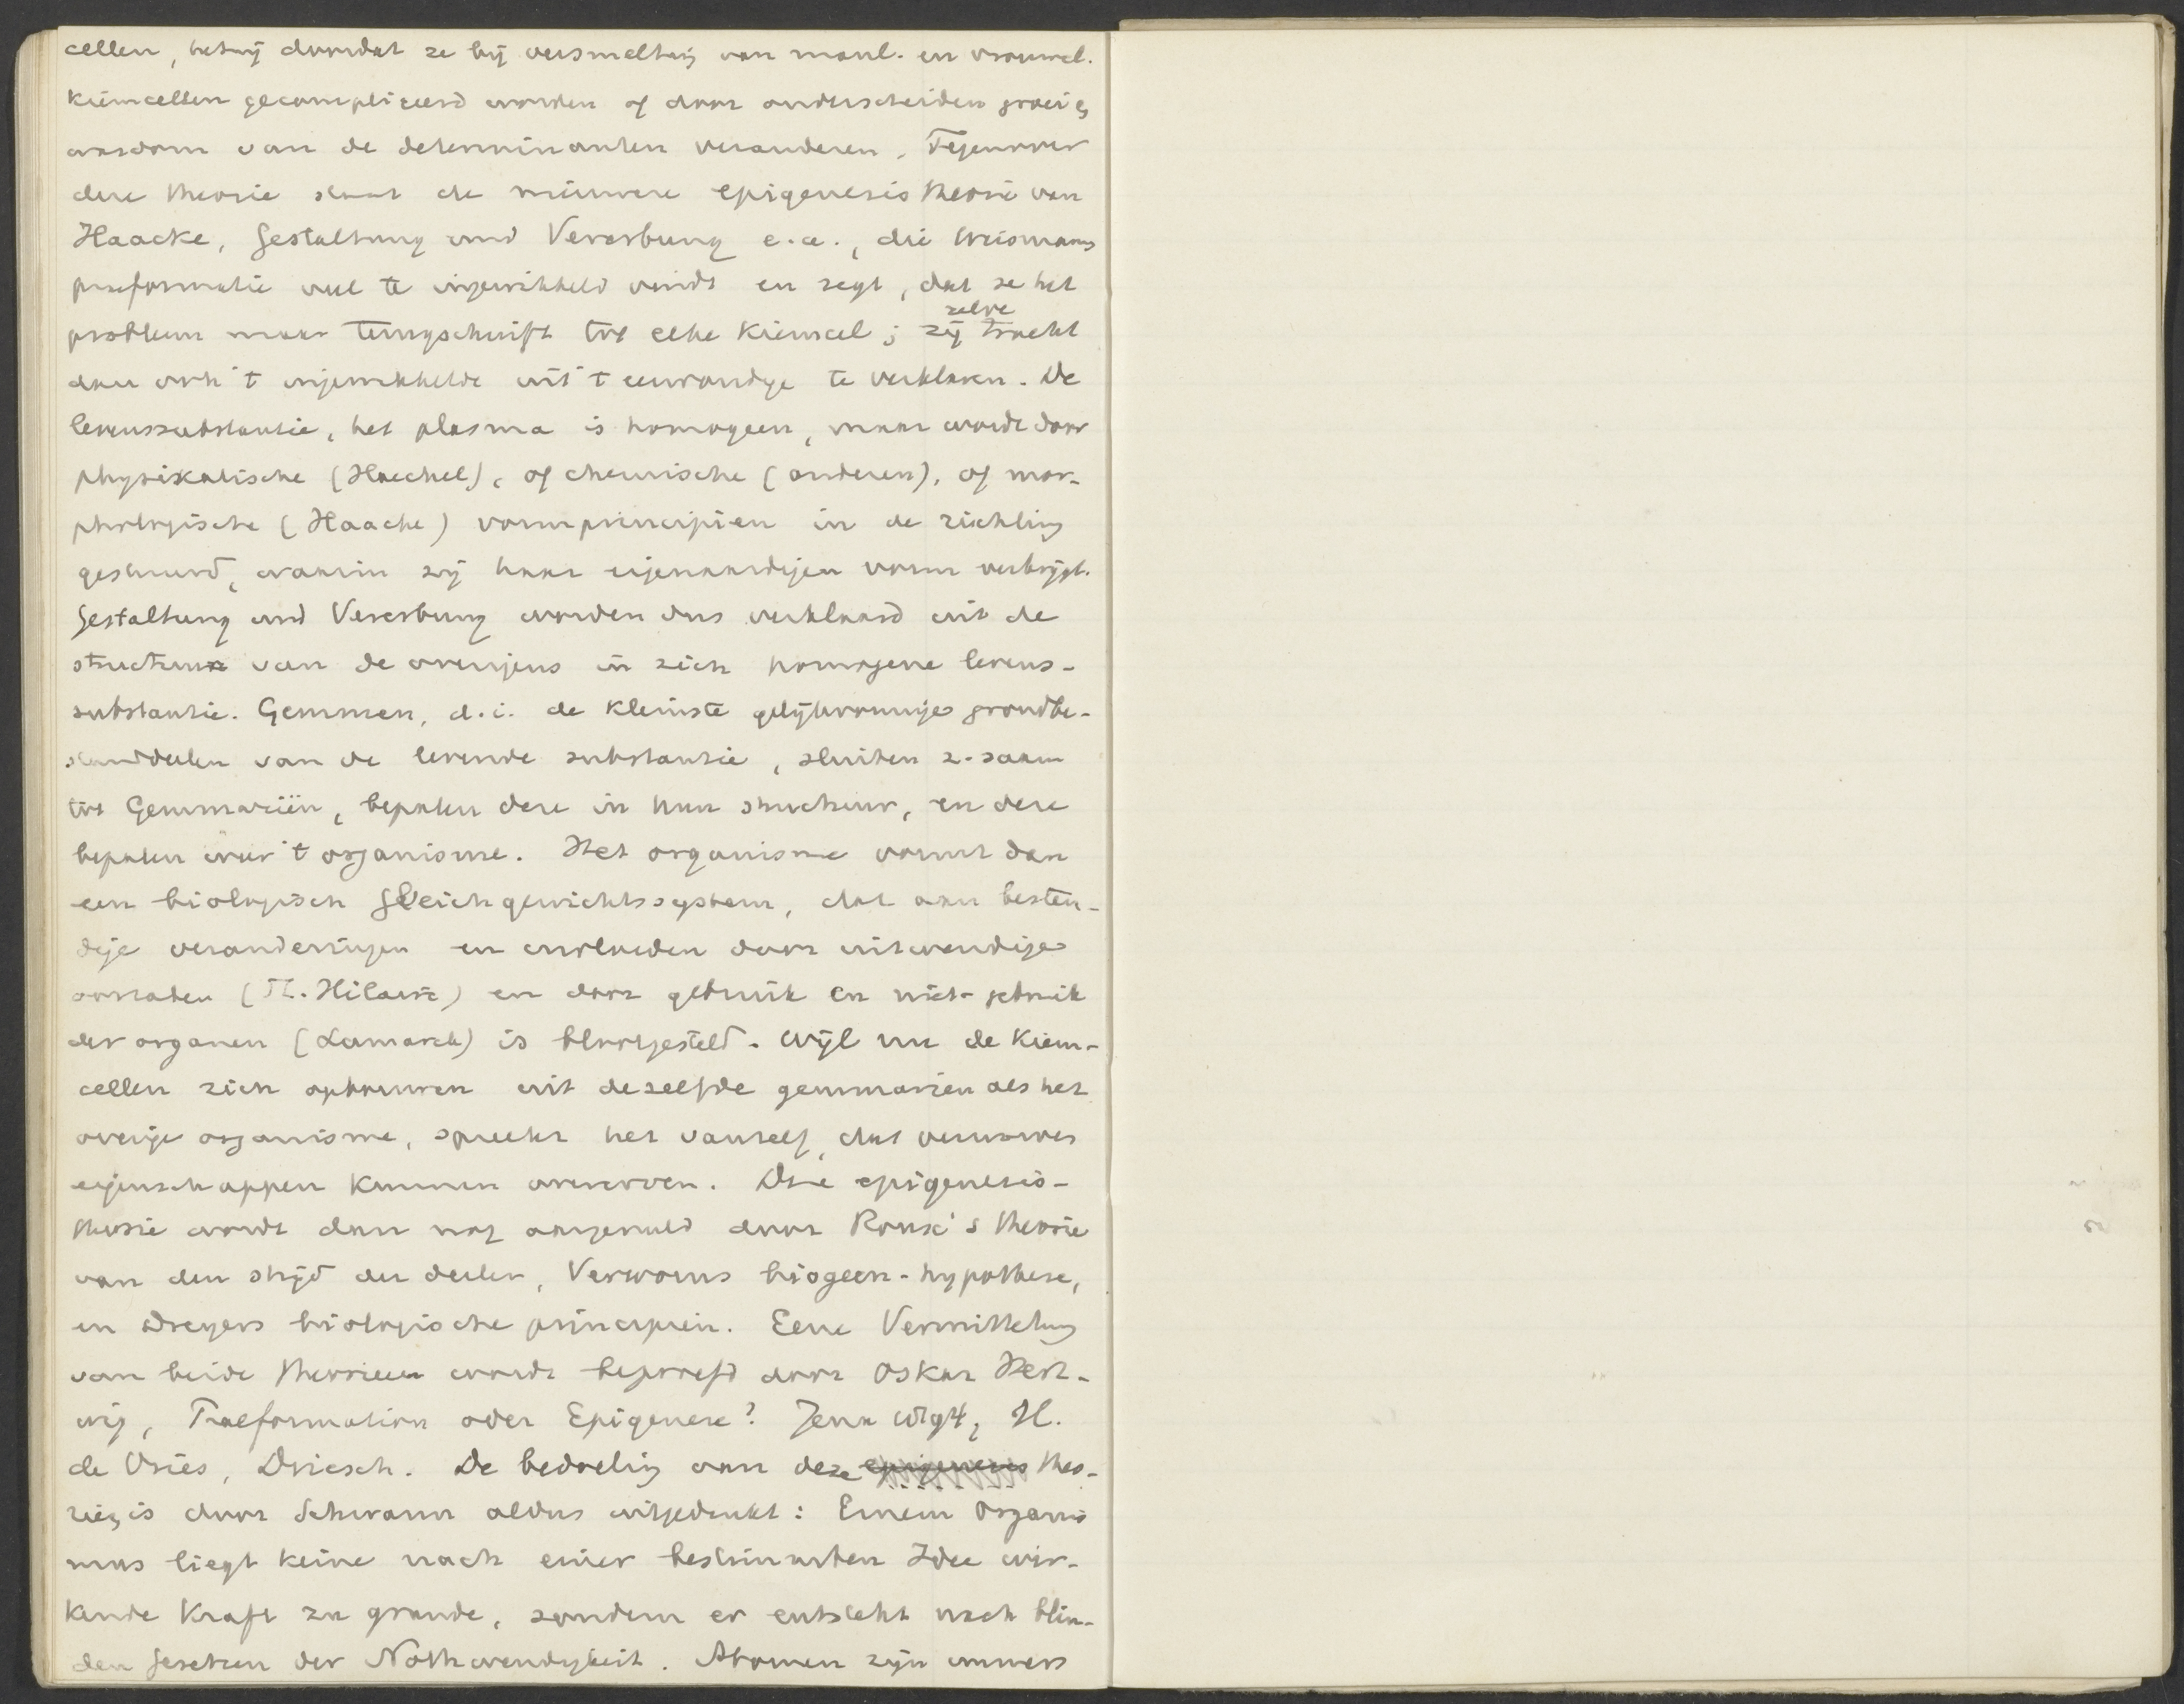 cellen, hetzij doordat ze bij versmelting van manl. en vrouwel.
kiemcellen gecompliceerd worden of door onderscheiden groei &
wasdom van de determinanten veranderen. Tegenover
deze theorie staat de nieuwere epigenesis theorie van
Haacke, Gestaltung und Vererbung e.a., die Weismanns
praeformatie veel te ingewikkeld vindt en zegt, dat ze het
probleem maar terugschuift tot elke kiemcel; zij zelve tracht
dan ook 't ingewikkelde uit 't eenvoudige te verklaren. De
levenssubstantie, het plasma is homogeen, maar wordt door
physikalische (Haeckel), of chemische (anderen), of mor-
phologische (Haacke) vormprincipien in de richting
gestuurd, waarin zij haar eigenaardigen vorm verkrijgt.
Gestaltung und Vererbung worden dus verklaard uit de
structuur van de overigens in zich homogene levens-
substantie. Gemmen, d.i. de kleinste gelijkvormige grondbe-
standdeelen van de levende substantie, sluiten z. saam
tot Gemmariën, bepalen deze in hun structuur, en deze
bepalen weer 't organisme. Het organisme vormt dan
een biologisch Gleichgewichtssysteem, dat aan besten-
dige veranderingen en invloeden door uitwendige
oorzaken (St. Hilaire) en door gebruik en niet-gebruik
der organen (Lamarck) is blootgesteld. Wijl nu de kiem-
cellen zich opbouwen uit dezelfde gemmarien als het
overige organisme, spreekt het vanzelf, dat verworven
eigenschappen kunnen overerven. Deze epigenesis-
theorie wordt dan nog aangevuld door Roux's theorie
van den strijd der deelen, Verworns biogeen-hypothese,
en Dreyers biologische principien. Eene Vermittelung
van beide theorieen wordt beproefd door Oskar Hert-
wig, Praeformation oder Epigenese? Jena 1894, H.
de Vries, Driesch. De bedoeling van deze epigenesis theo-
rie, is door Schwann aldus uitgedrukt: Einem Organis
mus liegt keine nach einer bestimmten Idee wir-
kende Kraft zu grunde, sondern er entsteht nach blin-
den Gesetzen der Nothwendigkeit. Atomen zijn immers